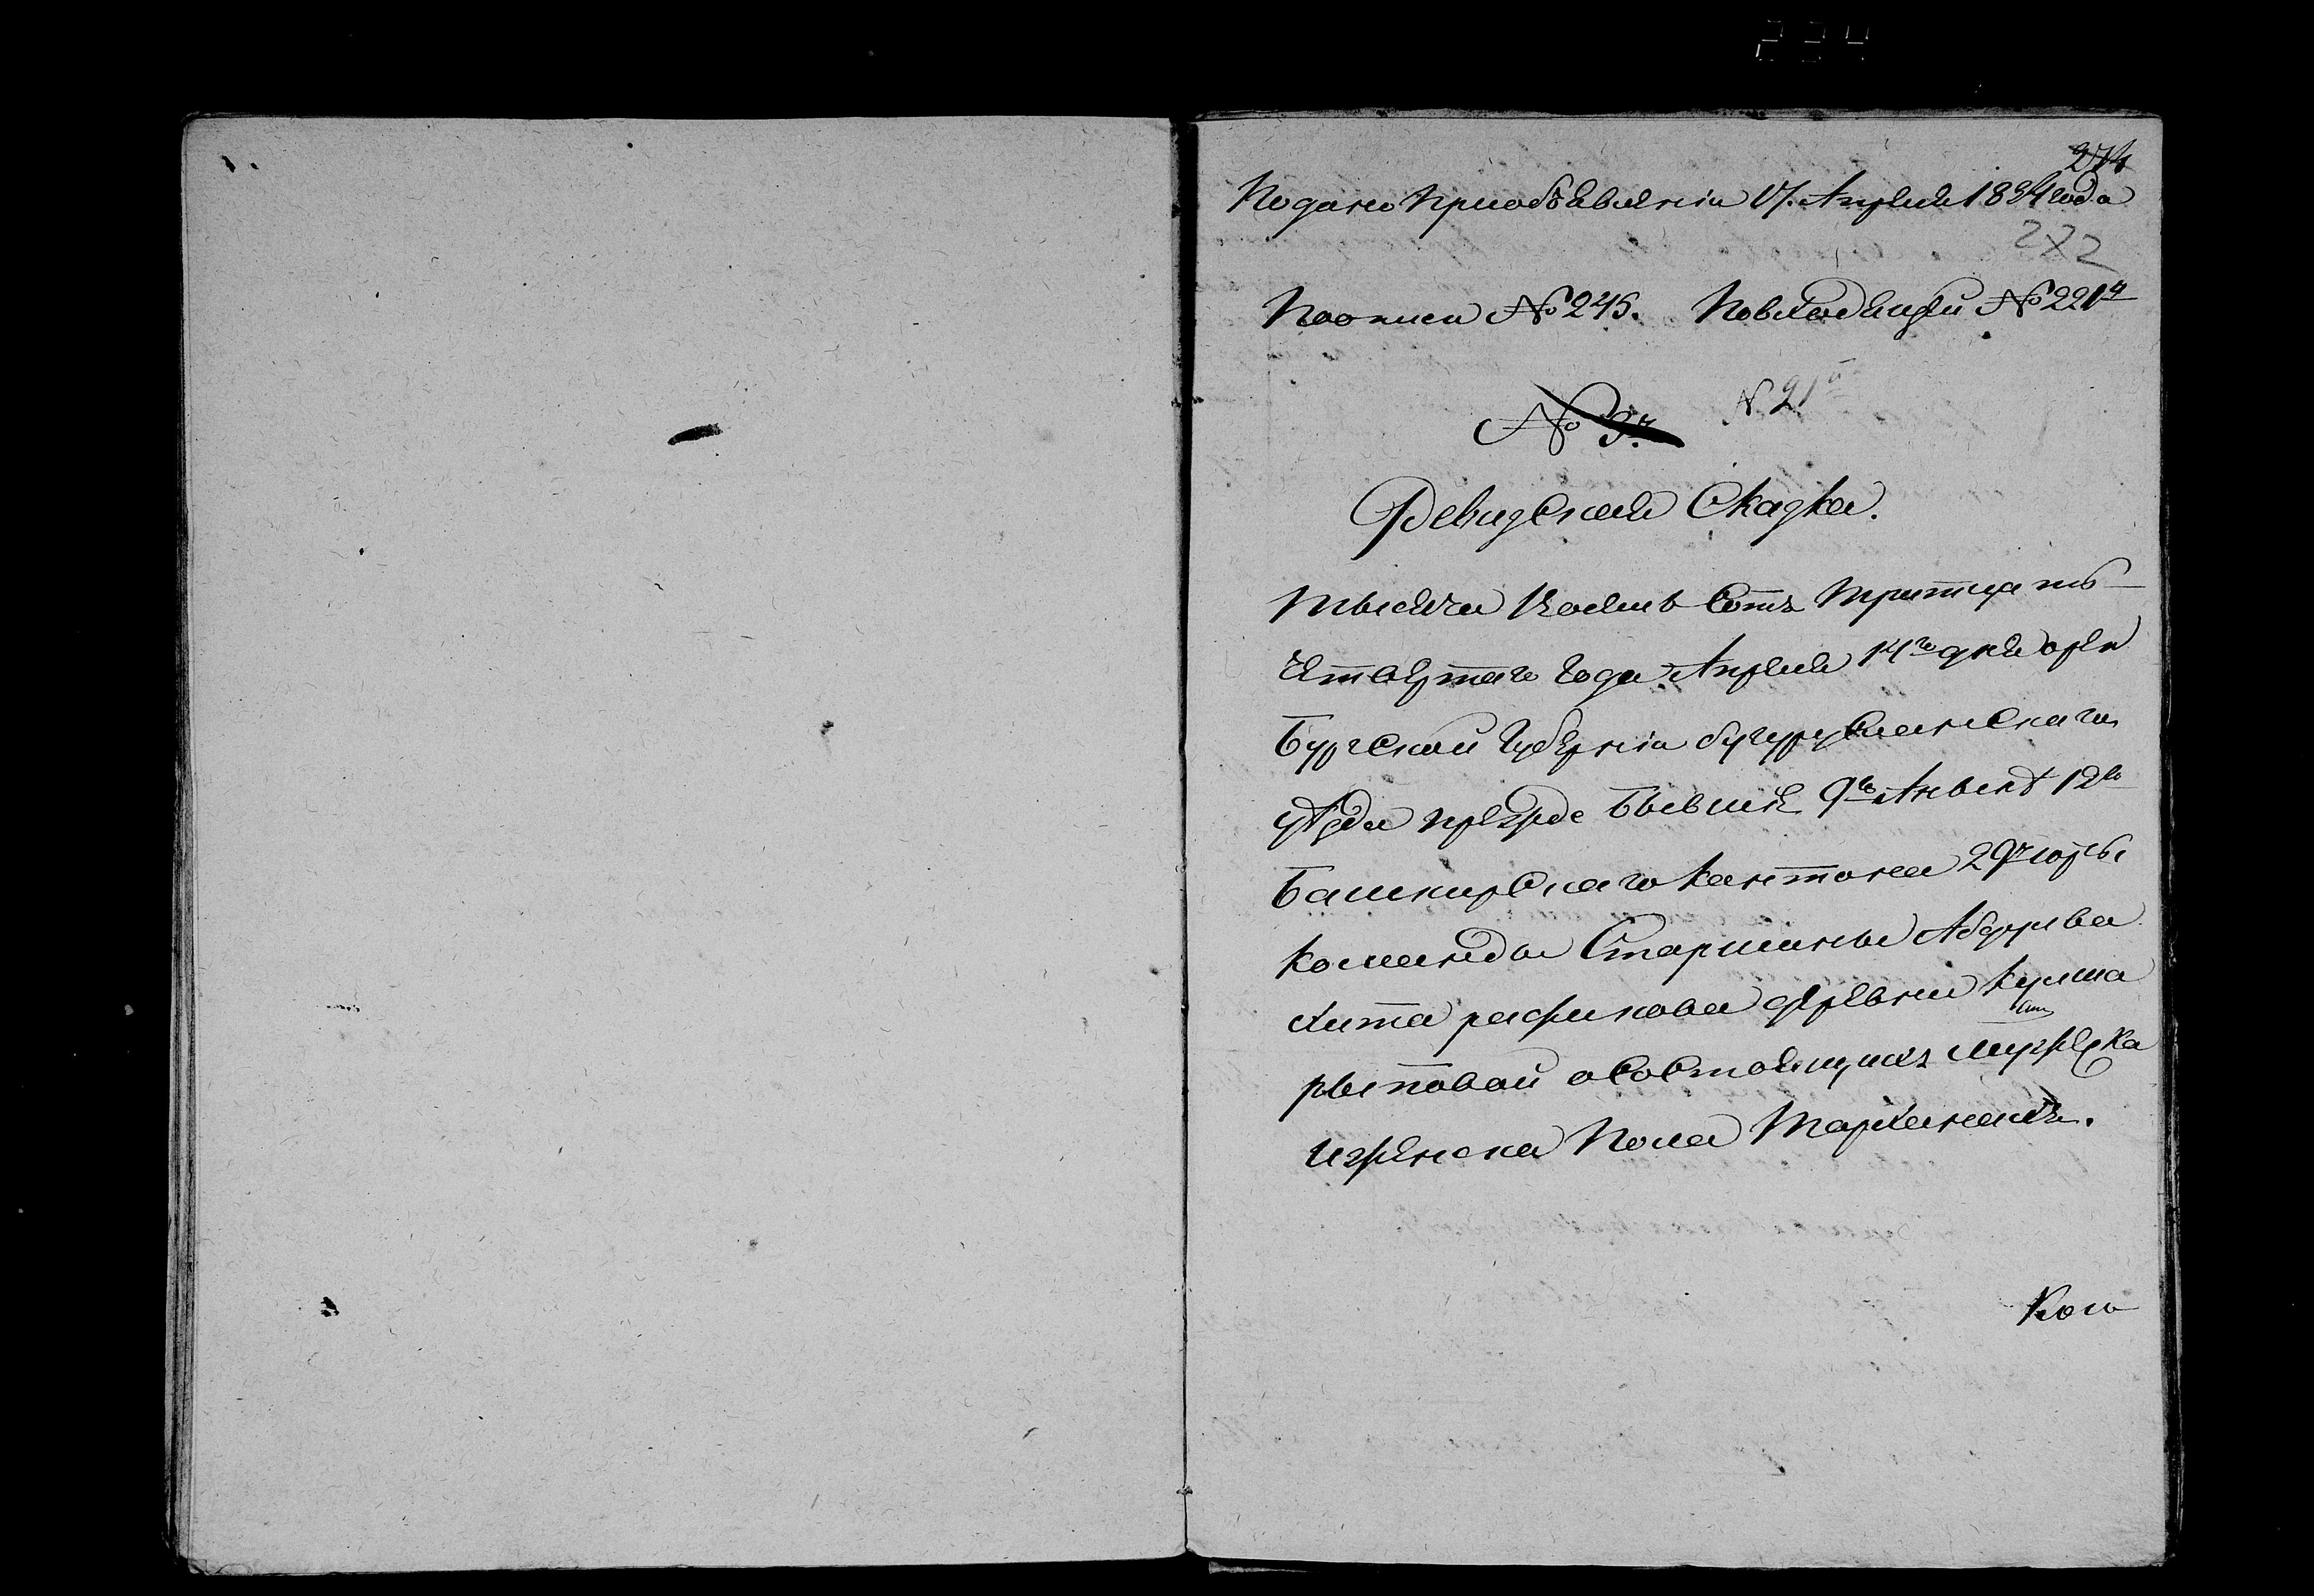 234
274
Подано приобъявленіи 17. Апреля 1834 года
272
Поописи № 245. Повходящей № 221й
№ 9й № 21й
Ревизская Скаска.
Тысяча восемь сотъ тритцать
четвертаго года Апреля 14го дня орен
бургской губерніи бугурусланскаго
уѣзда прежде бывшей 9го Анынѣ 12го
башкирскаго кантона 29й юрты
команды Старшины Абдрва
хита рафикова деревни Курма
рытовой осостоящихъ мужеска
иженска пола Тарханахъ.
Кого